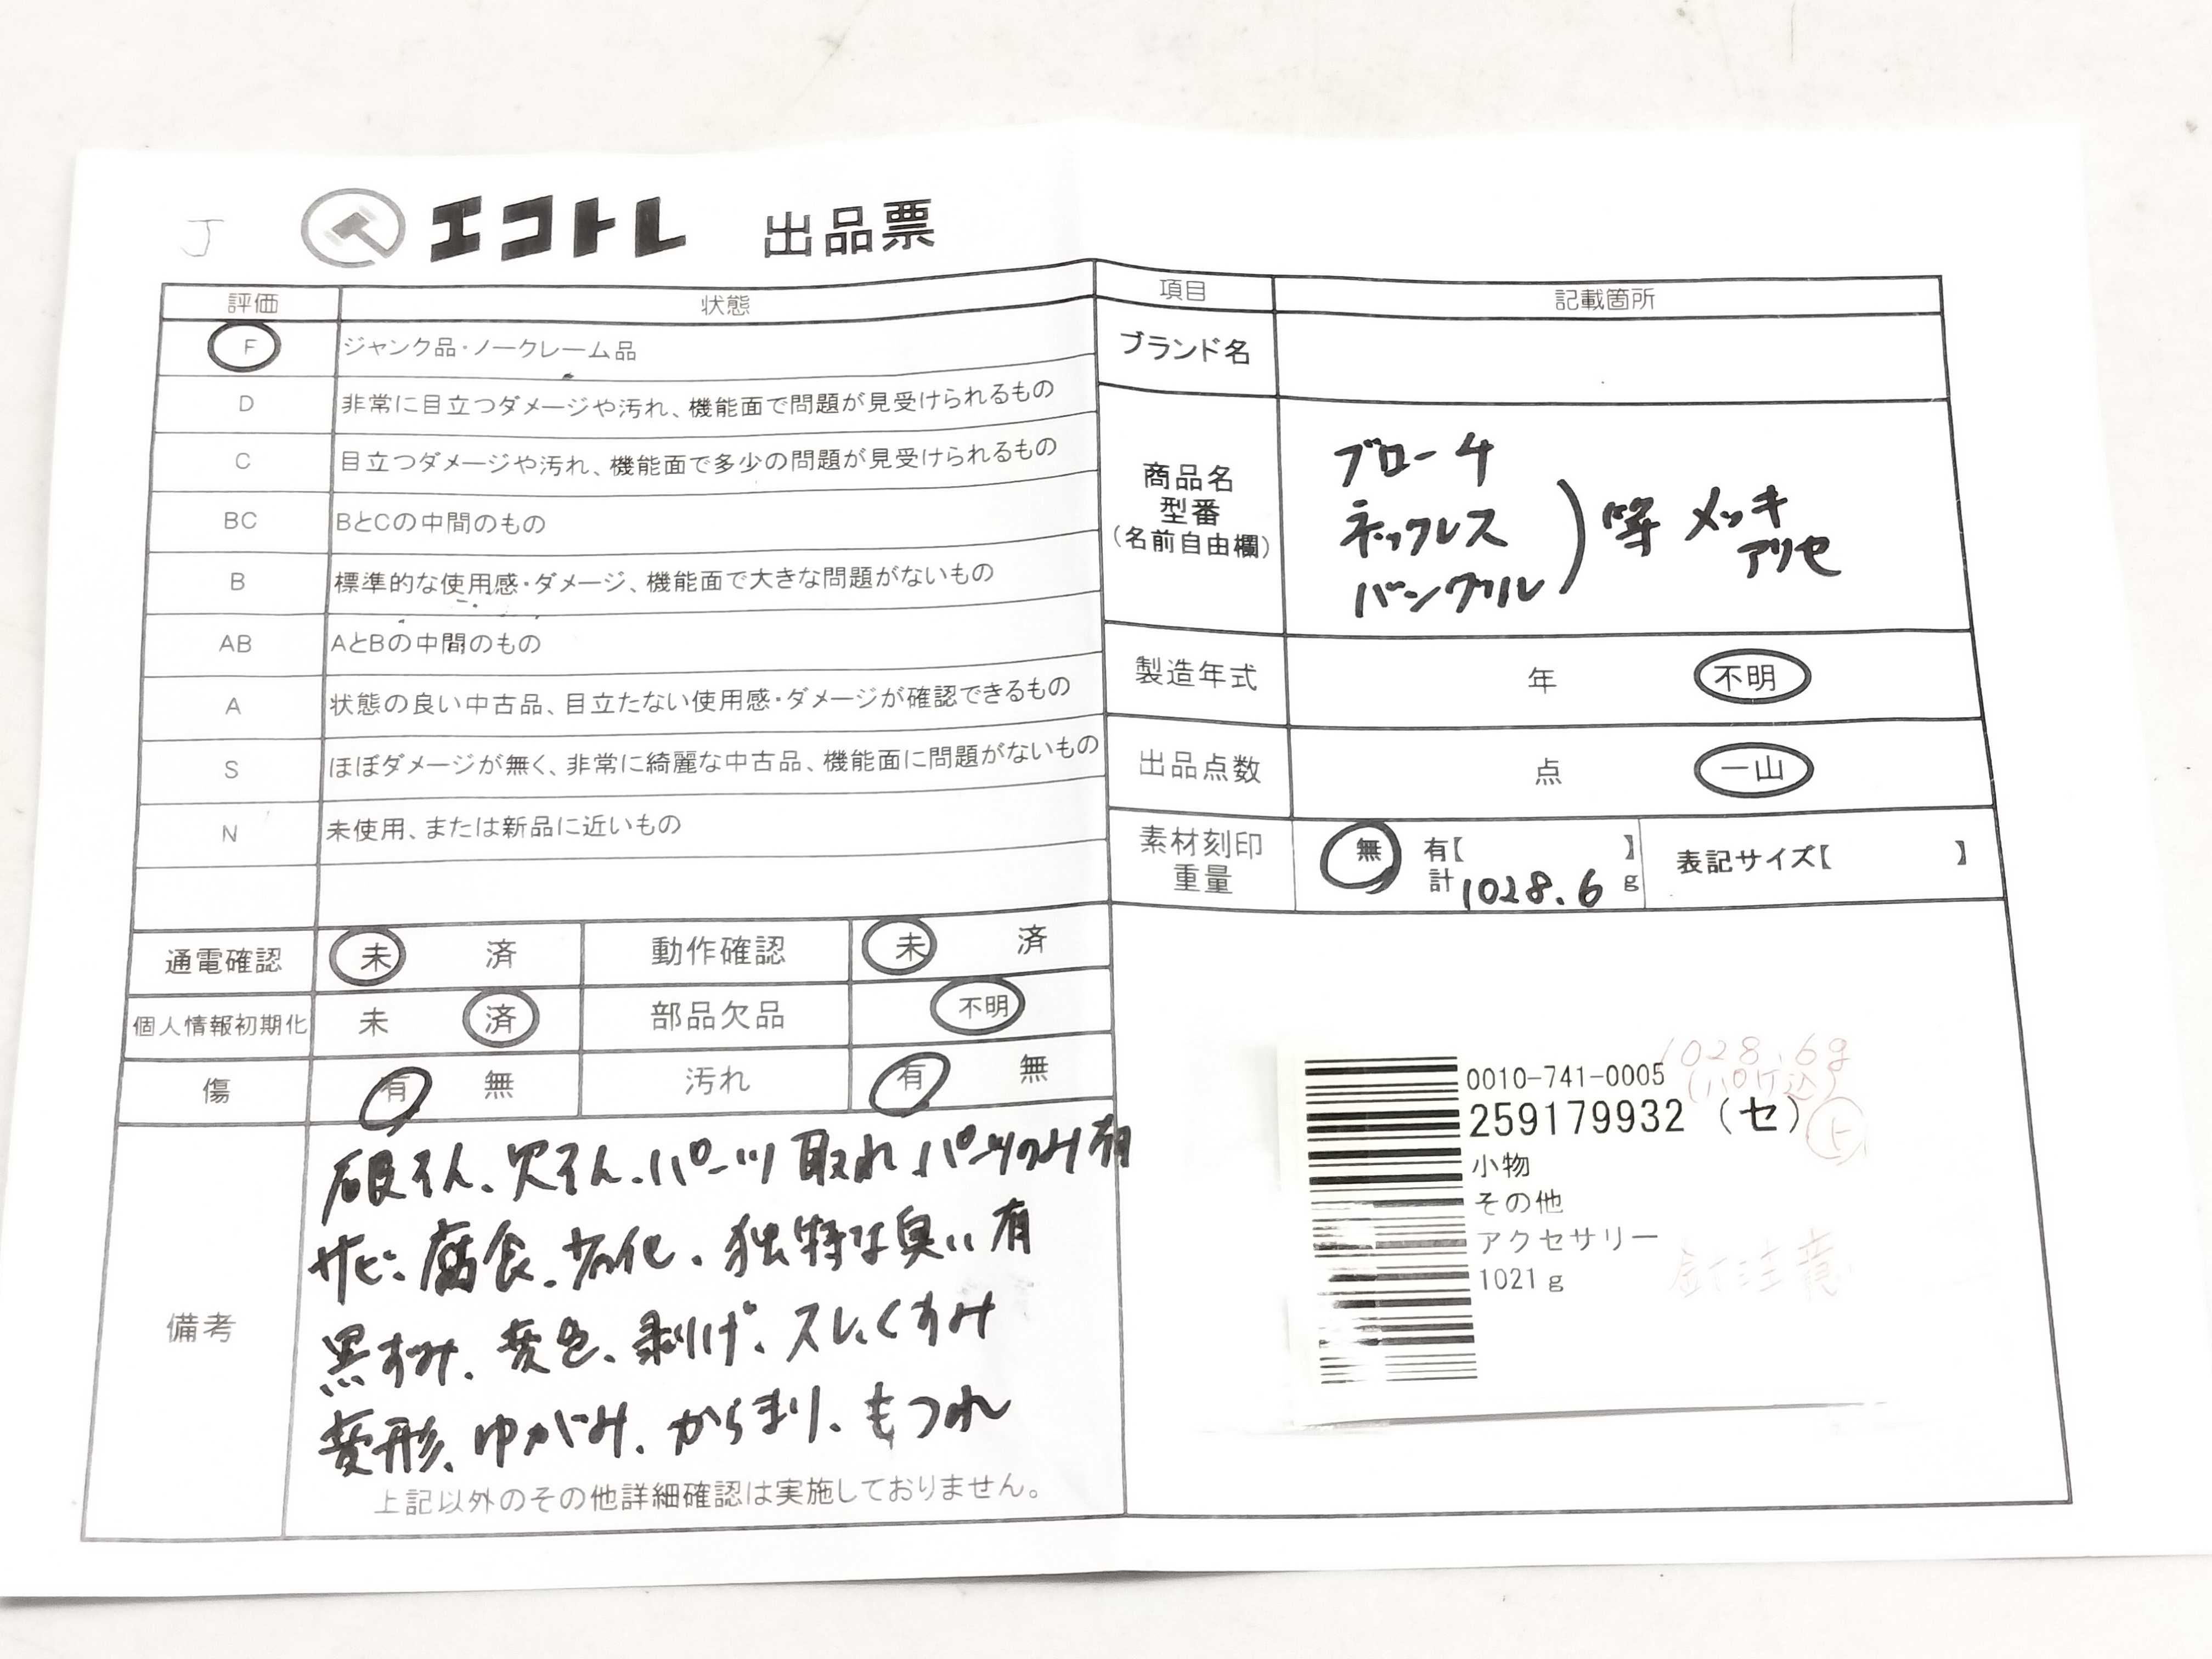 J
エコトレ 出品票
評価 状態
F ジャンク品・ノークレーム品
D 非常に目立つダメージや汚れ、機能面で問題が見受けられるもの
C 目立つダメージや汚れ、機能面で多少の問題が見受けられるもの
BC BとCの中間のもの
B 標準的な使用感・ダメージ、機能面で大きな問題がないもの
AB AとBの中間のもの
A 状態の良い中古品、目立たない使用感・ダメージが確認できるもの
S ほぼダメージが無く、非常に綺麗な中古品、機能面に問題がないもの
N 未使用、または新品に近いもの
通電確認 未 済 動作確認 未 済
個人情報初期化 未 済 部品欠品 不明
傷 有 無 汚れ 有 無
備考
破そん、欠そん、パーツ取れ、パーツのみ有
サビ、腐食、劣化、独特な臭い有
黒ずみ、変色、剥げ、スレ、くすみ
変形、ゆがみ、からまり、もつれ
上記以外のその他詳細確認は実施しておりません。
項目 記載箇所
ブランド名
商品名
型番
(名前自由欄)
ブローチ
ネックレス
バングル
) 等 メッキ
アクセ
製造年式 年 不明
出品点数 点 一山
素材刻印 無 有【 】 表記サイズ【 】
重量 計 1028.6 g
1028.6g
0010-741-0005 (パケ込)
259179932 (セ)
小物
その他
アクセサリー
1021g